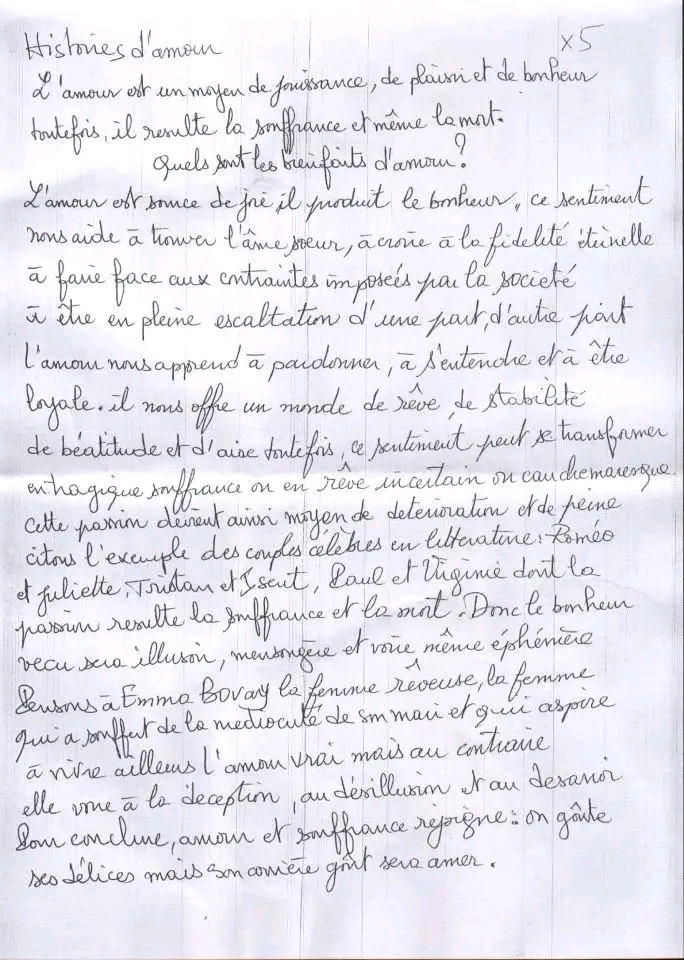 Histoires d'amour
x5
L'amour est un moyen de jouissance, de plaisir et de bonheur
toutefois, il resulte la souffrance et même la mort.
Quels sont les bienfaits d'amour ?
L'amour est source de joie il produit le bonheur, ce sentiment
nous aide à trouver l'âme soeur, à croire à la fidelité éternelle
à faire face aux contraintes imposées par la societé
à être en pleine escaltation d'une part, d'autre part
l'amour nous apprend à pardonner, à s'entendre et à être
loyale. il nous offre un monde de rêve, de stabilité
de béatitude et d'aise toutefois, ce sentiment peut se transformer
en tragique souffrance ou en rêve incertain ou cauchemaresque.
cette passion devient ainsi moyen de deterioration et de peine
citons l'exemple des couples célèbres en litterature : Roméo
et juliette, Tristan et Iseut, Paul et Virginie dont la
passion resulte la souffrance et la mort. Donc le bonheur
vecu sera illusoin, mensongère et voire même éphémère
Pensons à Emma Bovary la femme rêveuse, la femme
qui a souffert de la mediocrité de son mari et qui aspire
à vivre ailleurs l'amour vrai mais au contraire
elle voue à la deception, au désillusion et au desarroi
Pour conclure, amour et souffrance rejoigne : on goûte
ses délices mais son arrière goût sera amer.